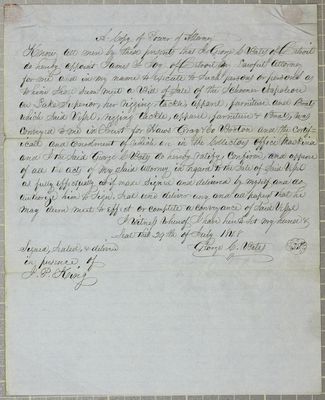 A Copy of Power of Attorney
Know all men by these presents that I George C Bates of Detroit
do hereby appoint James L Fox of Detroit my Lawful Attorney
for me and in my name to execute to such persons or persons as
to him shall seem meet a Bill of Sale of the Schooner Napoleon
on Lake Superior her rigging tackle apparel furniture and Boats
which said Vessel, rigging tackle apparel furniture & Boats, was
conveyed to me in trust for the certifi-
cate and enrolment of which are in the Collectors office Mackinac
and I the said George C Bates do hereby ratify Confirm and approve
of all the acts of my said attorney in regard to the Sale of said Vessel
as fully effectually as if made signed and delivered by myself and do
authorize him to sign seal and deliver any and all papers that he
may deem meet to effect or complete a conveyance of said Vessel
In witness whereof I have hereunto set my hand &
Seal this 29th of July 1848
George C. Bates
Signed, sealed & delivered
in presence of
J. P. King